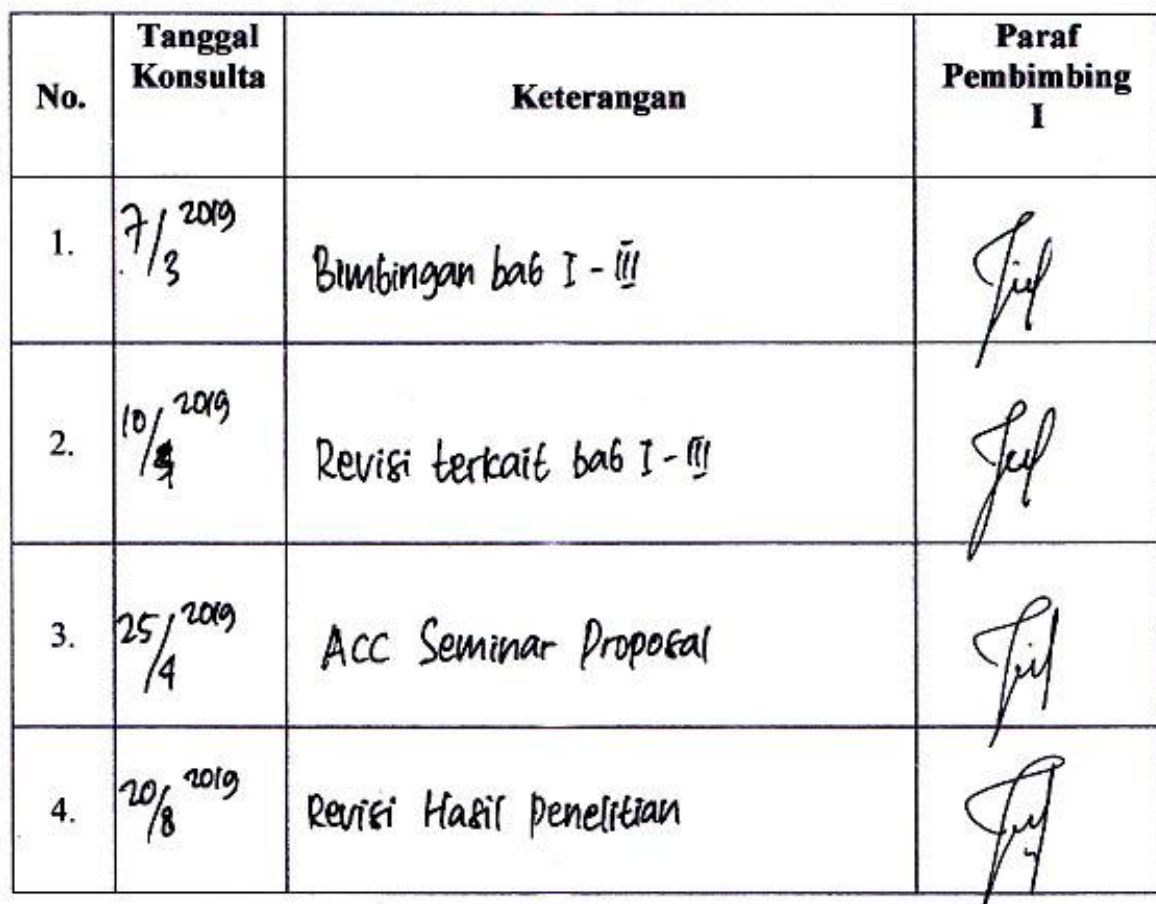 No.
Tanggal
Konsulta
Keterangan
Paraf
Pembimbing
I
1.
7/3 2019
Bimbingan bab I - III
2.
10/4 2019
Revisi terkait bab I - III
3.
25/4 2019
Acc Seminar Proposal
4.
20/8 2019
Revisi Hasil penelitian